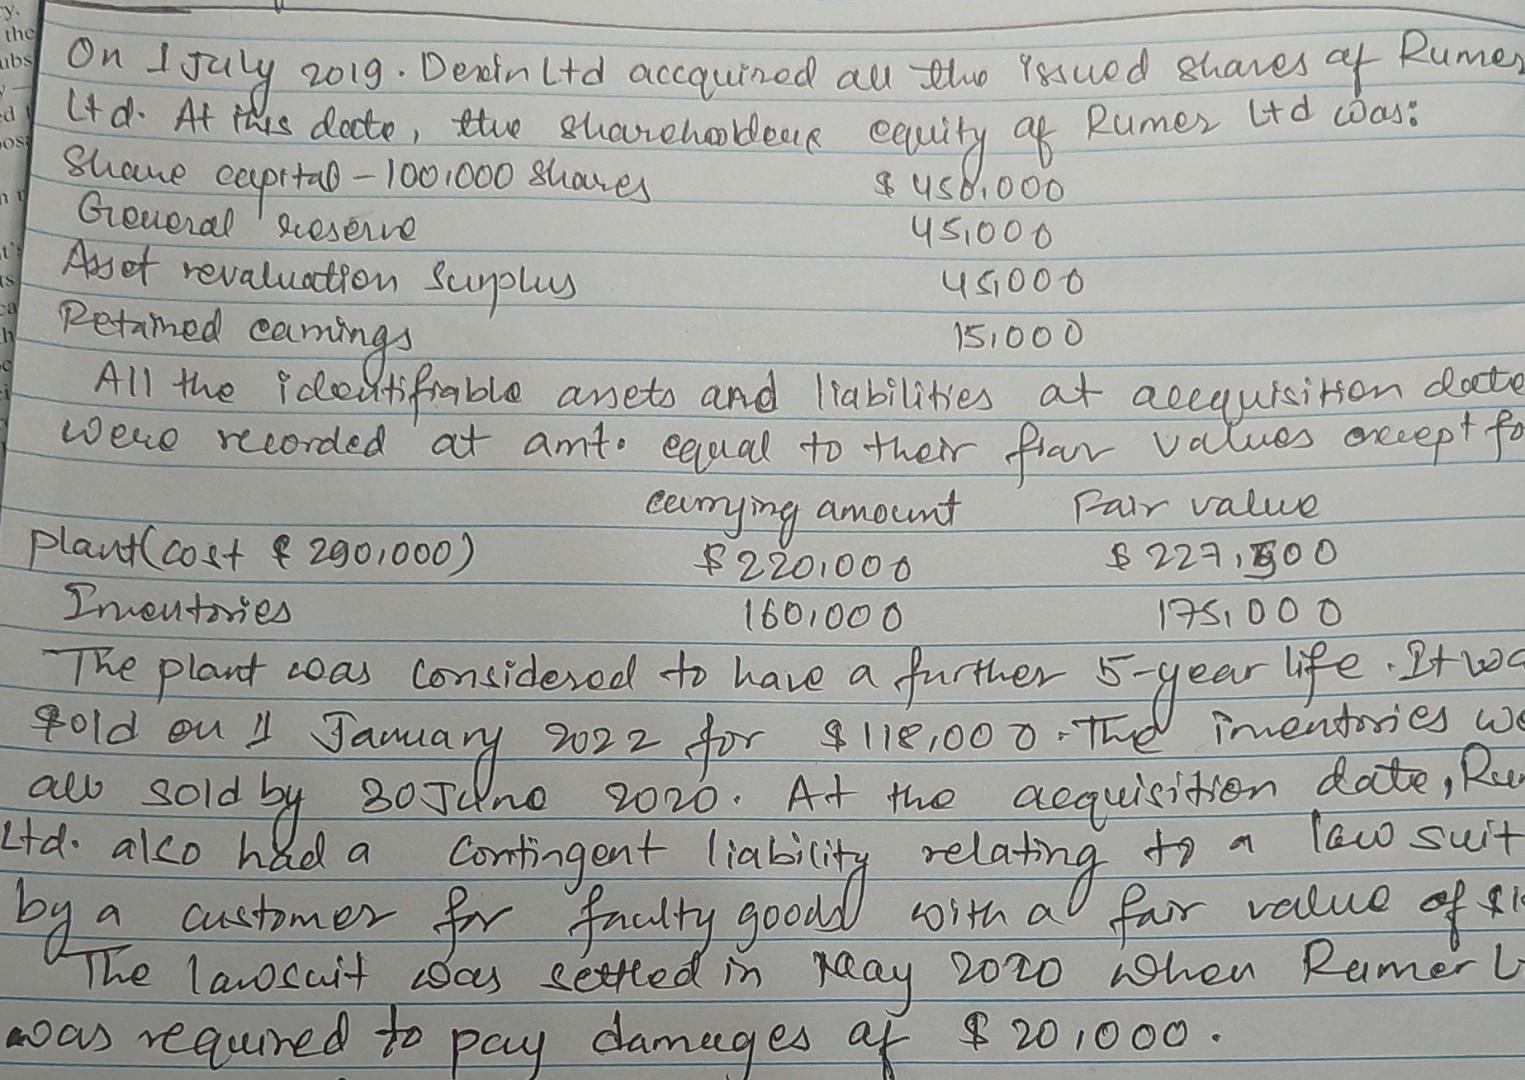 On 1 July 2019. Dexin Ltd accquired all the issued shares of Rumer
Ltd. At this date, the shareholders equity of Rumer Ltd was:
Share capital - 100,000 shares $ 450,000
General reserve 45,000
Asset revaluation surplus 45,000
Retained earnings 15,000
All the identifiable assets and liabilities at accquisition date
were recorded at amt. equal to their fiar values except fo
carrying amount Fair value
plant (cost $ 290,000) $ 220,000 $ 227,500
Inventories 160,000 175,000
The plant was considered to have a further 5-year life. It wa
sold on 1 January 2022 for $ 118,000. The inventories we
all sold by 30 June 2020. At the acquisition date, Rum
Ltd. also had a contingent liability relating to a law suit
by a customer for faulty goods with a fair value of $1
The lawsuit was settled in May 2020 when Rumer L
was required to pay damages of $ 20,000.